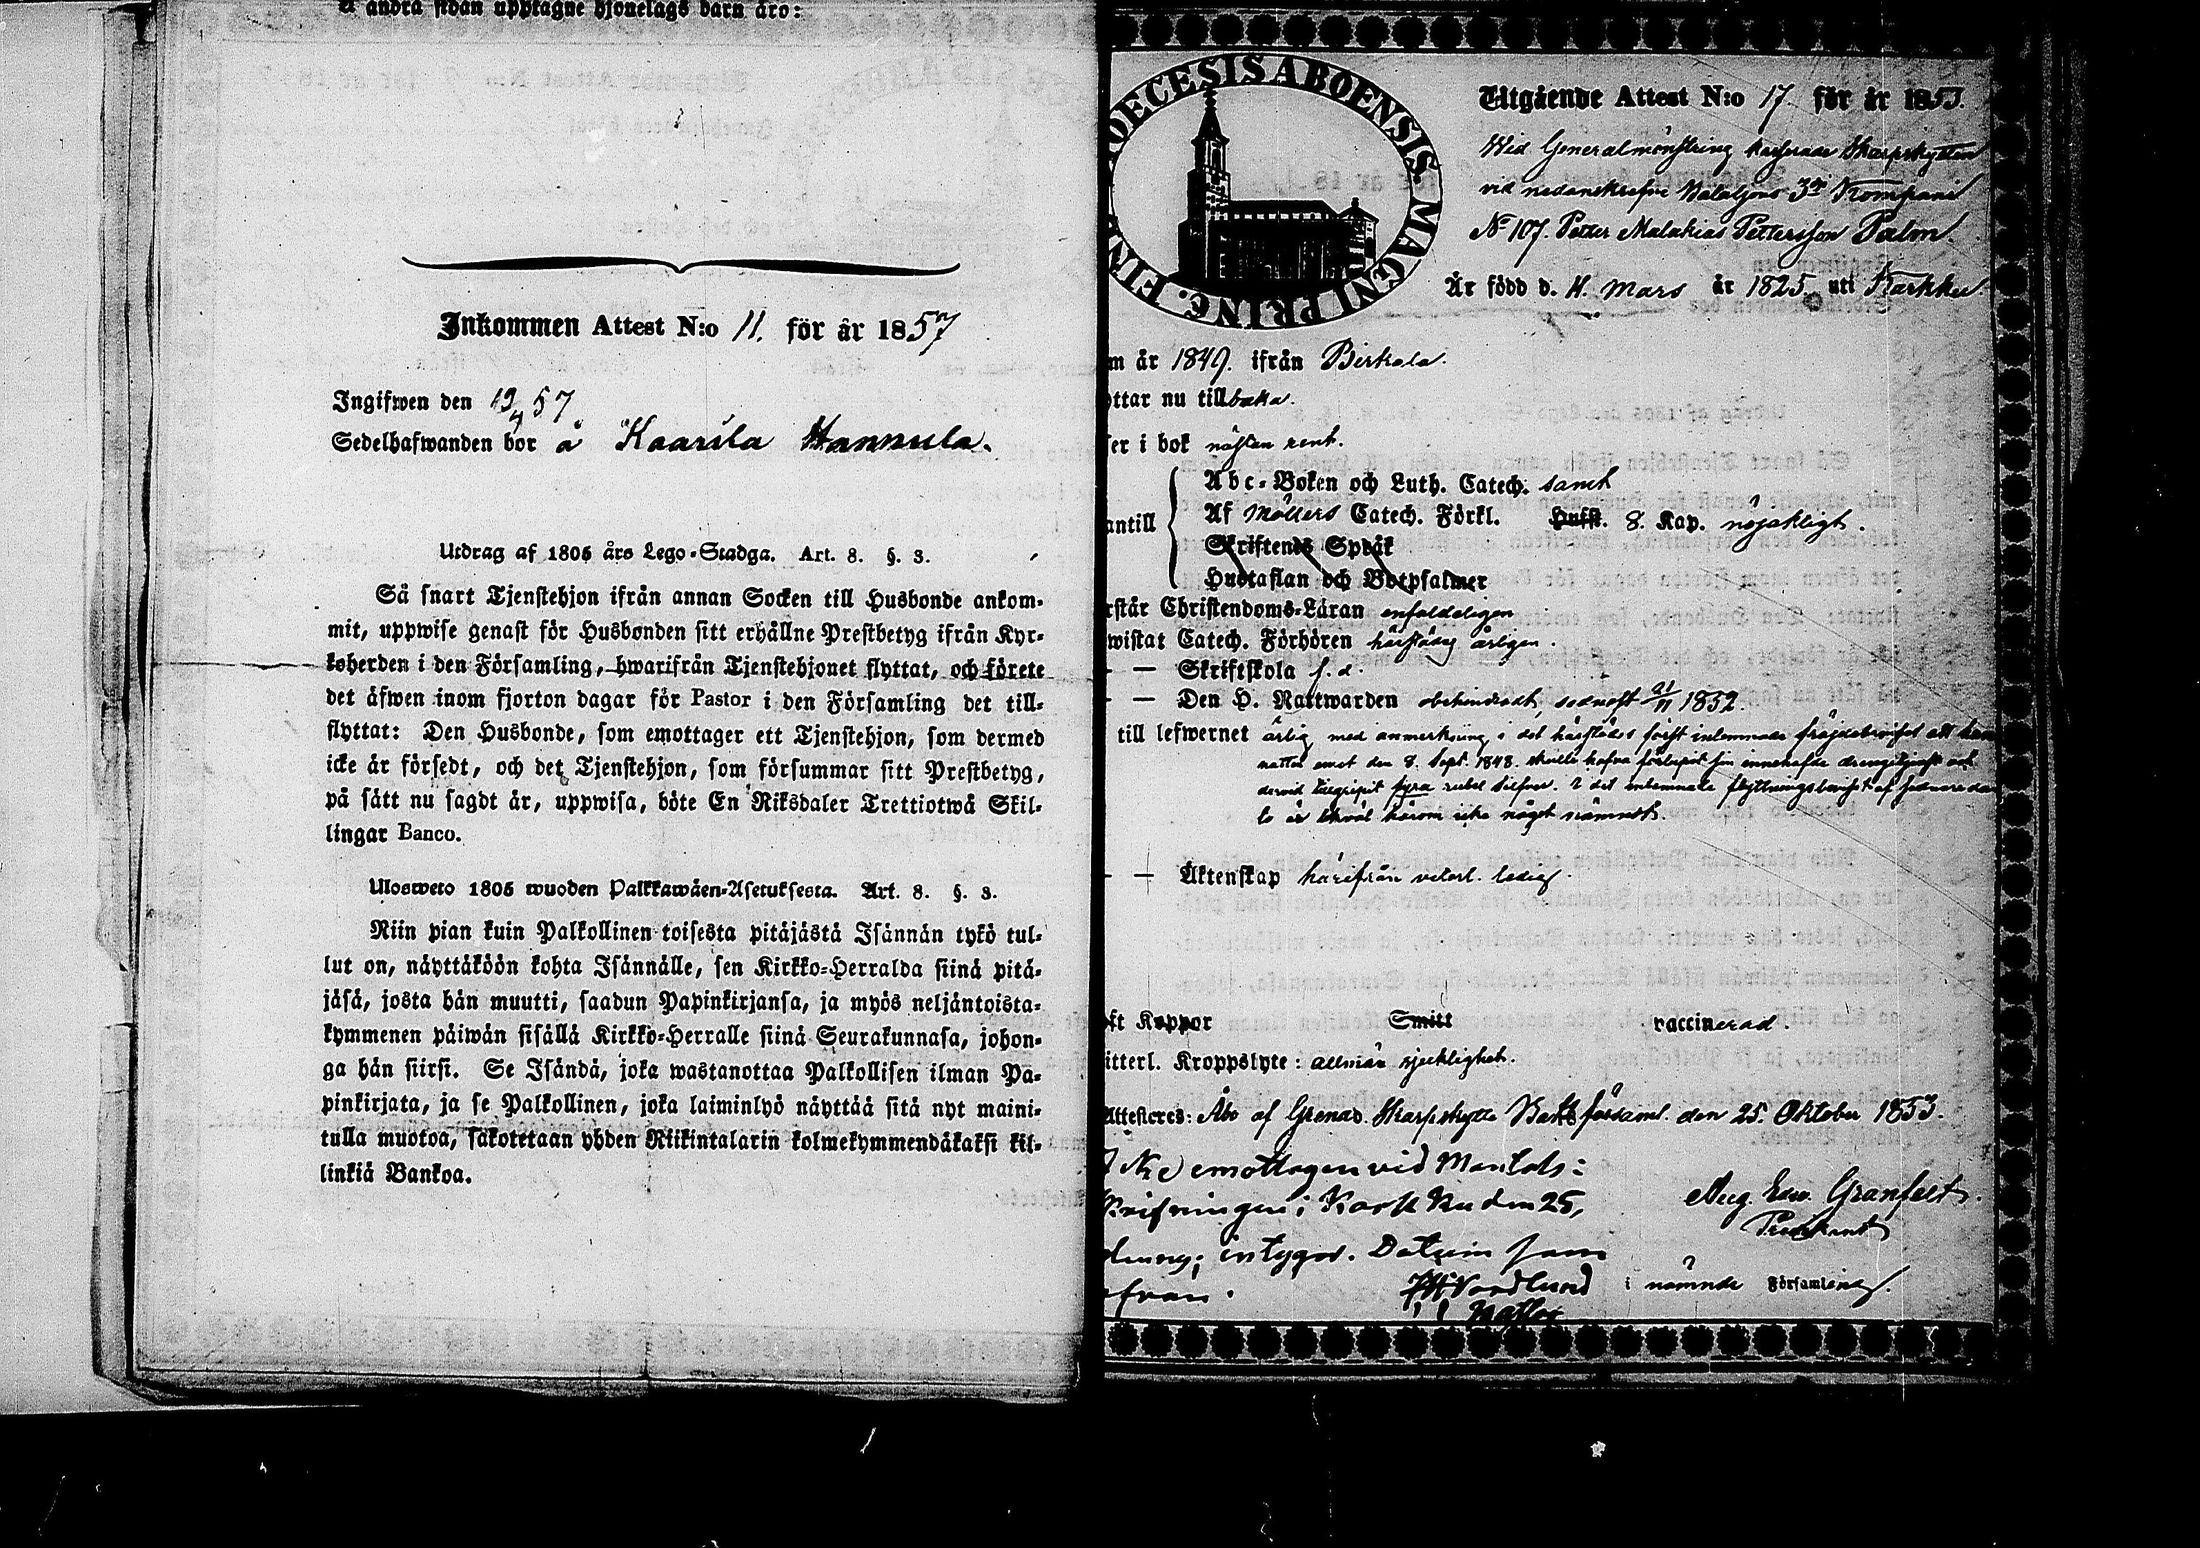 å andra sidan upptagne hjonelags barn äro:
Inkommen Attest N:o 11. för år 1857
Ingifwen den 19/4 57
Sedelhafwanden bor å Kaarila Hannula.
Utdrag af 1805 års Lego-Stadga. Art. 8. §. 3.
Så snart Tjenstehjon ifrån annan Socken till Husbonde ankom-
mit, uppwise genast för Husbonden sitt erhållne Prestbetyg ifrån Kyr-
koherden i den Församling, hwarifrån Tjenstehjonet flyttat, och förete
det äfwen inom fjorton dagar för Pastor i den Församling det till-
flyttat: Den Husbonde, som emottager ett Tjenstehjon, som dermed
icke är försedt, och det Tjenstehjon, som försummar sitt Prestbetyg,
på sätt nu sagdt är, uppwisa, böte En Riksdaler Trettiotwå Skil-
lingar Banco.
Ulosweto 1805 wuoden Palkkawäen-Asetuksesta. Art. 8. §. 3.
Niin pian kuin Palkollinen toisesta pitäjästä Isännän tykö tul-
lut on, näyttäköön kohta Isännälle, sen Kirkko-Herralda siinä pitä-
jäsä, josta hän muutti, saadun Papinkirjansa, ja myös neljäntoista-
kymmenen päiwän sisällä Kirkko-Herralle siinä Seurakunnasa, johon-
ga hän siirsi. Se Isändä, joka wastanottaa Palkollisen ilman Pa-
pinkirjata, ja se Palkollinen, joka laiminlyö näyttää sitä nyt maini-
tulla muotoa, sakotetaan yhden Riikintalarin kolmekymmendäkaksi kil-
linkiä Bankoa.
DIOECESIS ABOENSIS. MAGNI PRINC. FIN
Utgående Attest N:o 17. för år 1853.
Wid Generalmönstring kasserade Skarpskytten
vid nedanskrefne Bataljons 3ie Kompani
No 107. Petter Malakias Pettersson Palm.
Är född d. 4. Mars år 1825. uti Karkku
m år 1849. ifrån Birkala.
ttar nu tillbaka.
er i bok nästan rent.
Abc-Boken och Luth. Catech. samt
antill Af Möllers Catech. Förkl. Husst. 8. Kap. nöjaktigt.
Skriftenes Språk
Hustaflan och Botpsalmer
rstår Christendoms-Läran enfaldeligen
wistat Catech. Förhören härstädes årligen.
— Skriftskola f. d.
— Den H. Nattwarden obehindradt, sednast 21/11 1852.
till lefwernet ärlig, med anmerkning i det härstädes först inlemnade frägdebeviset att han
natten emot den 8. Sept. 1848. skulle hafva förlupit sin innehafde drengtjenst och
dervid tillgripit fyra rubel silfver. I det inlemnade flyttningsbeviset af sednare da
to är likväl härom icke något nämndt.
— Äktenskap härifrån veterl. ledig.
ft Koppor Smitt vaccinerad.
itterl. Kroppslyte: allmän sjuklighet.
Attesteres: Åbo af Grenad. Skarpskytte Bat:s församl. den 25. Oktober 1853.
Aug. Edw. Granfelt.
Predikant
i nämnde Församling.
emottagen vid Mantals:
krifningen i Karkku den 25,
intygar. Datum som
ofvan.
Nordlund
Pastor